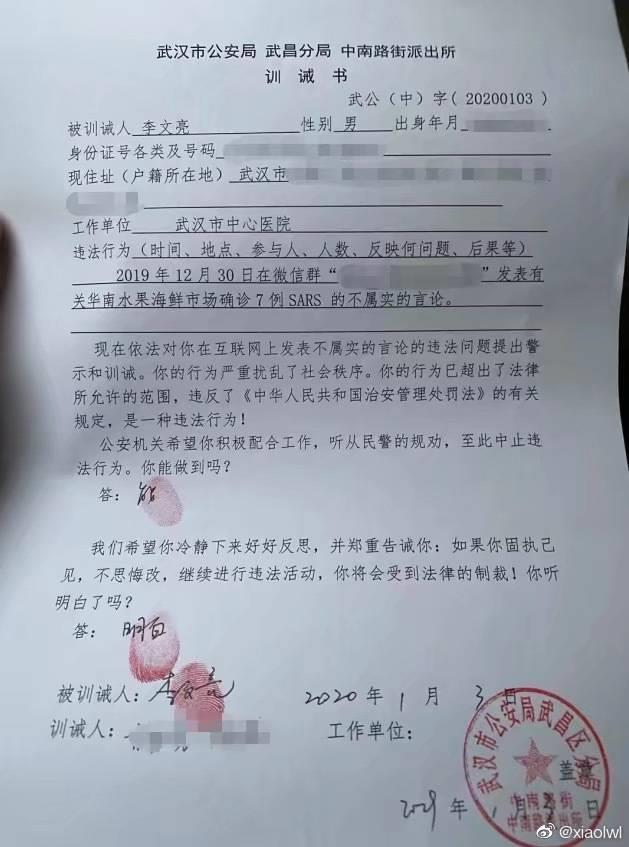 武汉市公安局 武昌分局 中南路街派出所
训 诫 书
武公（中）字（20200103）
被训诫人 李文亮 性别 男 出身年月
身份证号各类及号码
现住址（户籍所在地） 武汉市
工作单位 武汉市中心医院
违法行为（时间、地点、参与人、人数、反映何问题、后果等）
2019年12月30日在微信群“ ”发表有
关华南水果海鲜市场确诊7例SARS的不属实的言论。
现在依法对你在互联网上发表不属实的言论的违法问题提出警
示和训诫。你的行为严重扰乱了社会秩序。你的行为已超出了法律
所允许的范围，违反了《中华人民共和国治安管理处罚法》的有关
规定，是一种违法行为！
公安机关希望你积极配合工作，听从民警的规劝，至此中止违
法行为。你能做到吗？
答：能
我们希望你冷静下来好好反思，并郑重告诫你：如果你固执己
见，不思悔改，继续进行违法活动，你将会受到法律的制裁！你听
明白了吗？
答：明白
被训诫人：李文亮 2020年1月3日
训诫人： 工作单位：
武汉市公安局武昌区分局
盖章
中南路街
派出所
年1月3日
@xiaolwl